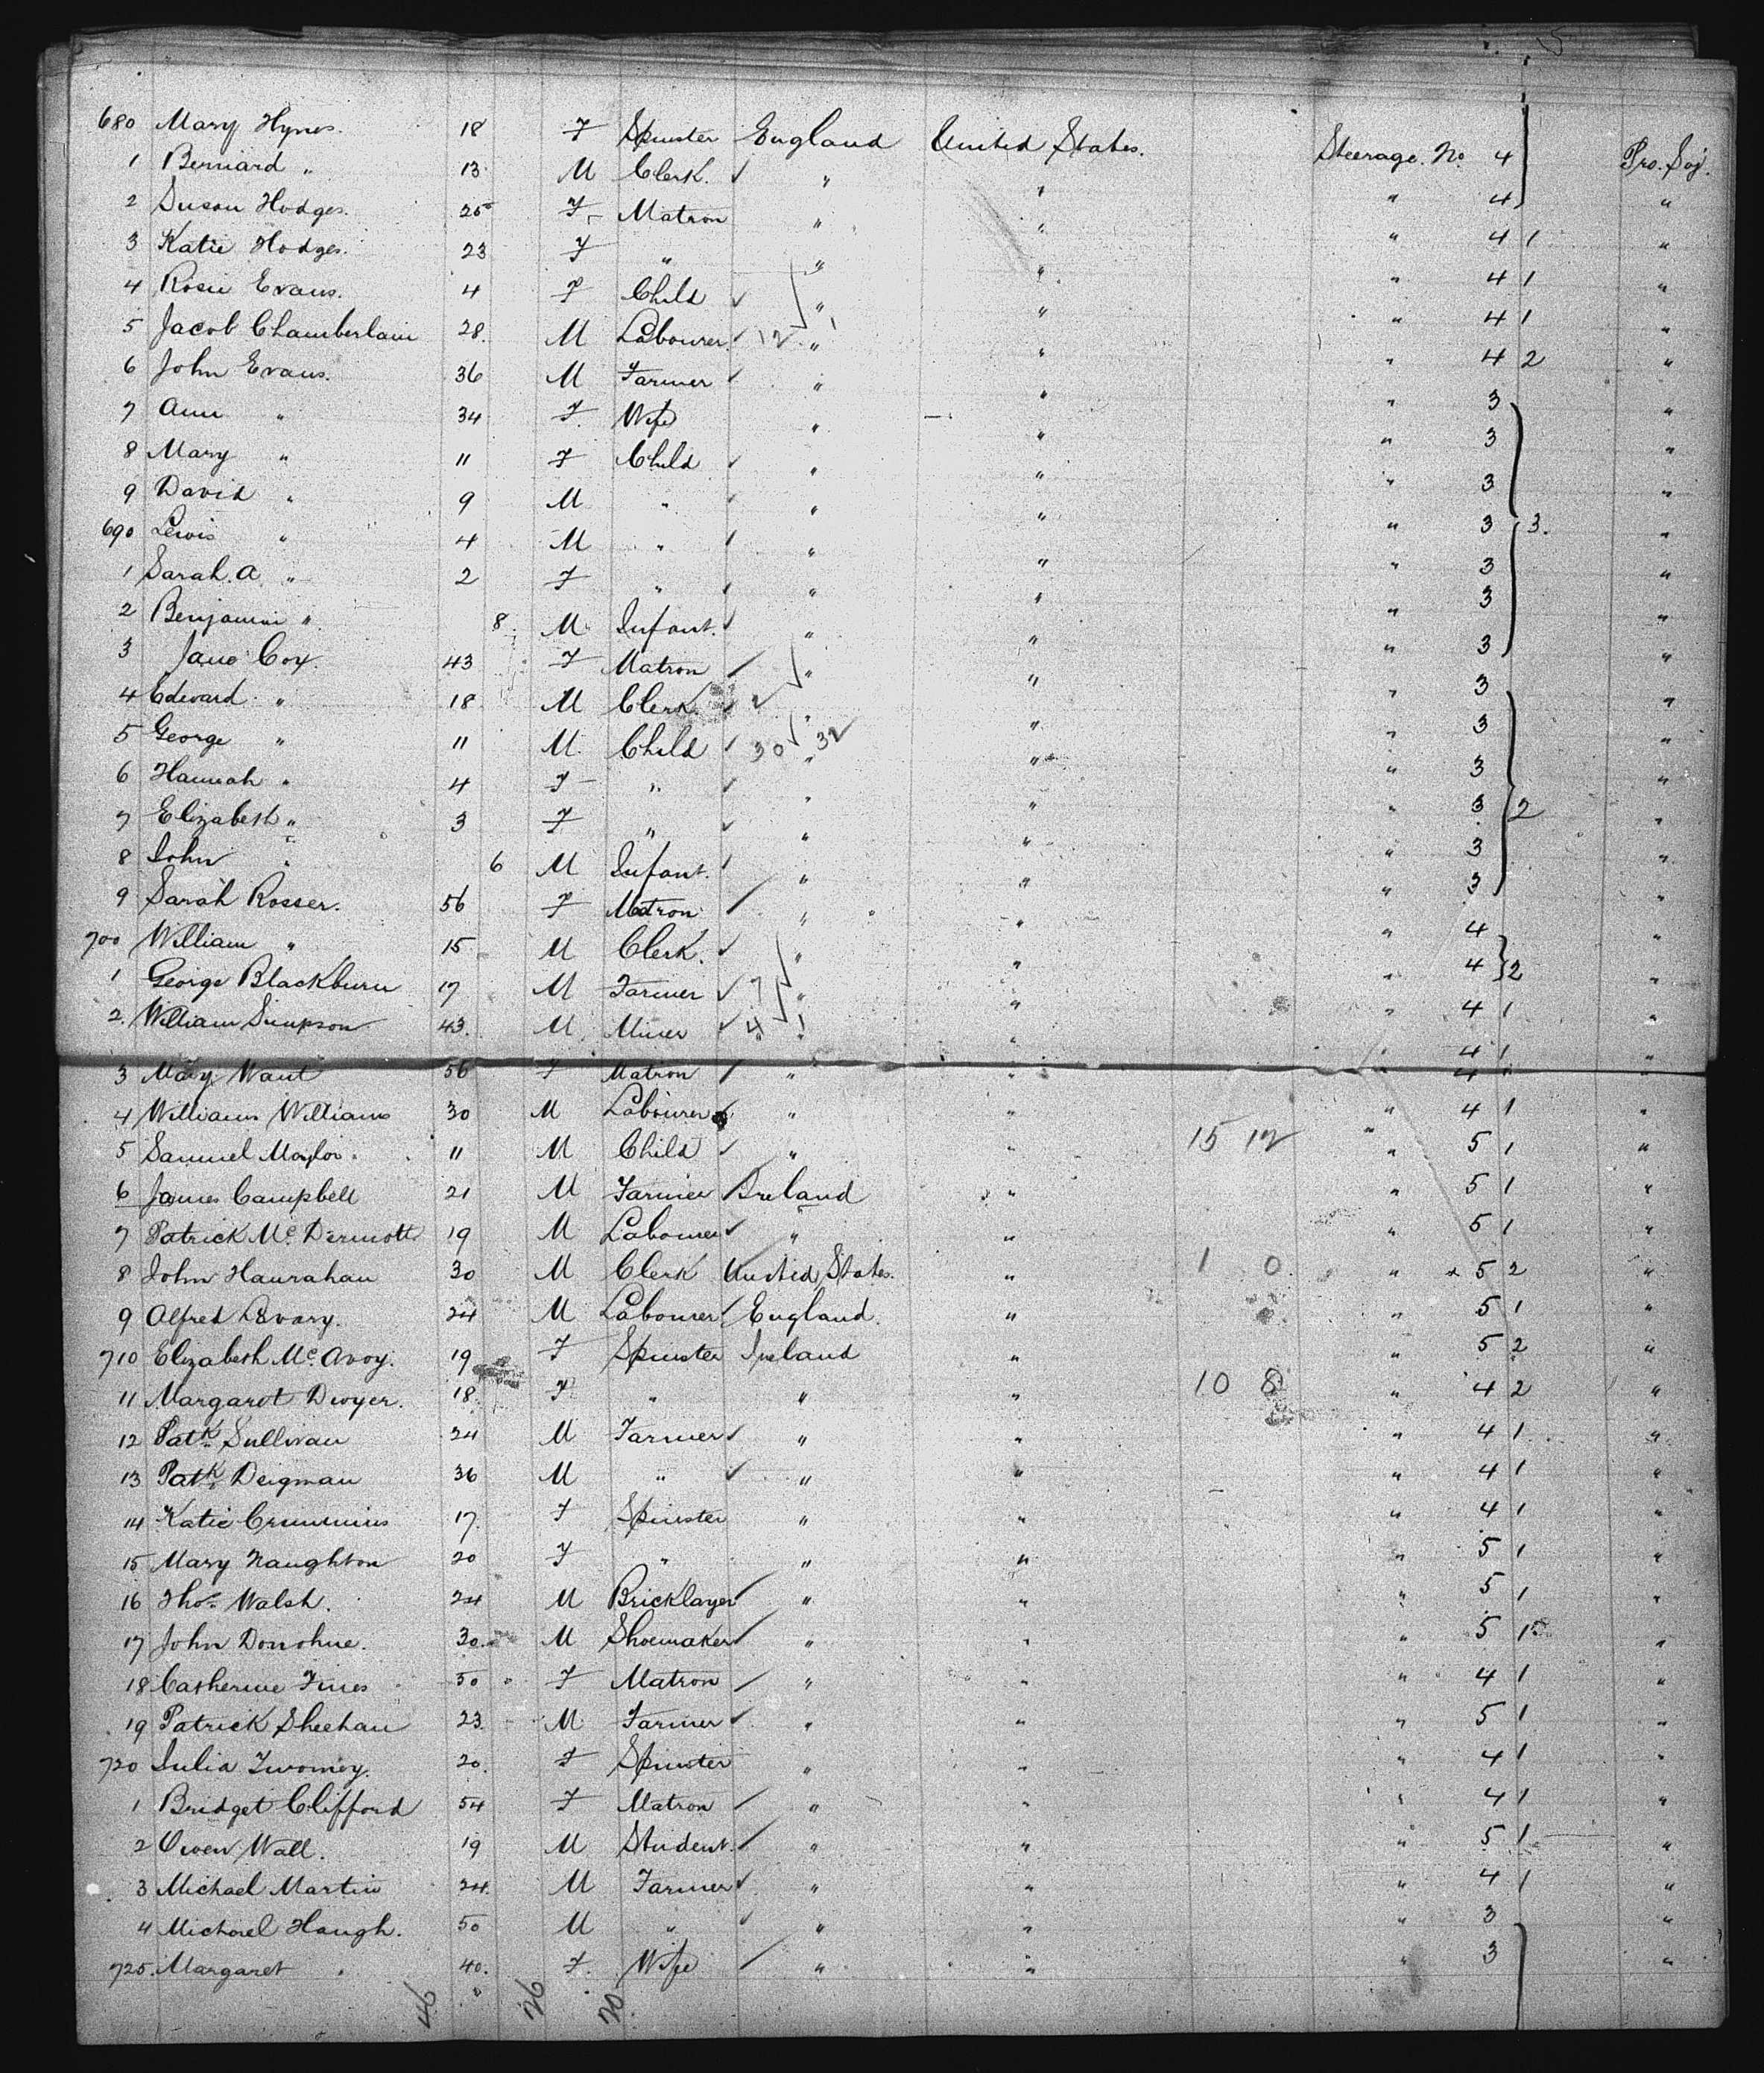 680 Mary Hynes. 18 F Spinster England United States. Steerage. No. 4 Pro. Soj.
1 Bernard " 13 M Clerk. " " " 4 "
2 Susan Hodges. 25 F Matron " " " 4 1 "
3 Katie Hodges. 23 F " " " " 4 1 "
4 Rosie Evans. 4 F Child " " " 4 1 "
5 Jacob Chamberlain 28. M Labourer 12 " " " 4 2 "
6 John Evans. 36 M Farmer " " " 3 "
7 Ann " 34 F. Wife " " " 3 "
8 Mary " 11 F Child " " " 3 "
9 David " 9 M " " " " 3 3. "
690 Lewis " 4 M " " " " 3 "
1 Sarah. A. " 2 F " " " " 3 "
2 Benjamin " 8 M Infant. " " " 3 "
3 Jane Cox. 43 F Matron " " " 3 "
4 Edward " 18 M Clerk. 2 " " " 3 "
5 George " 11 M. Child 30 32 " " " 3 "
6 Hannah " 4 F " " " " 3 2 "
7 Elizabeth " 3 F " " " " 3 "
8 John " 6 M Infant. " " " 3 "
9 Sarah Rosser. 56 F Matron " " " 4 "
700 William " 15 M Clerk. " " " 4 2 "
1 George Blackburn 17 M Farmer 7 " " " 4 1 "
2. William Simpson 43. M Miner 4 " " " 4 1 "
3 Mary Want 56 F Matron " " " 4 " "
4 William Williams 30 M Labourer " " " 4 1 "
5 Samuel Maylor. 11 M Child " " 15 12 " 5 1 "
6 James Campbell 21 M Farmer Ireland " " 5 1 "
7 Patrick Mc. Dermott 19 M Labourer " " " 5 1 "
8 John Hanrahan 30 M Clerk United States. " 1 0 " x 5 2 "
9 Alfred Evary. 24 M Labourer England. " " 5 1 "
710 Elizabeth Mc. Avoy. 19 F Spinster Ireland " " 5 2 "
11 Margaret Dwyer. 18 F. " " " 10 8 " 4 2 "
12 Patk. Sullivan 24 M Farmer " " " 4 1 "
13 Patk. Deigman 36 M " " " " 4 1 "
14 Katie Crummins 17. F Spinster " " " 4 1 "
15 Mary Naughton 20 F " " " " 5 1 "
16 Thos. Walsh. 24 M Bricklayer " " " 5 1 "
17 John Donohue. 30. M Shoemaker " " " 5 1 "
18 Catherine Fines 50 F Matron " " " 4 1 "
19 Patrick Sheehan 23. M Farmer " " " 5 1 "
720 Julia Twomey. 20. F Spinster " " " 4 1 "
1 Bridget Clifford 54 F Matron " " " 4 1 "
2 Owen Wall. 19 M Student. " " " 5 1 "
3 Michael Martin 24. M Farmer " " " 4 1 "
4 Michael Haugh. 50 M " " " " 3 "
725. Margaret " 40. F. Wife " " " 3 "
46 26 20